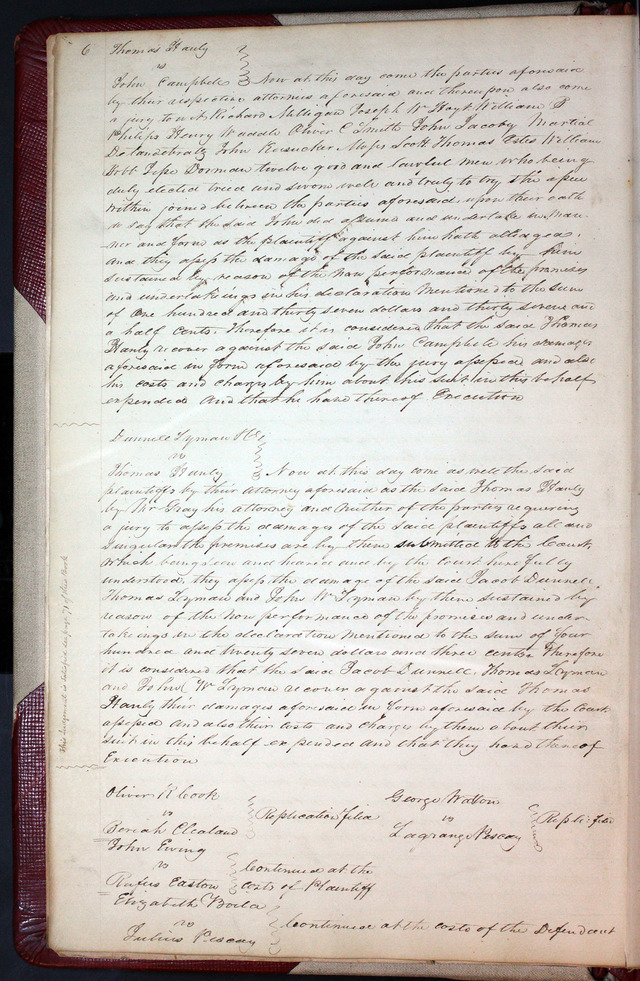 6 Thomas Hanly
vs
John Campbell Now at this day come the parties aforesaid
by their respective attornies aforesaid and thereupon also come
a jury to wit Richard Milligan Joseph W Hoyt William P
Philips Henry Waddle Oliver C Smith John Jacoby Martial
Detandebratz John Moses Scott Thomas Estes William
Webb Dorman twelve good and lawful men who being
duly elected tried and sworn well and truly to try the issue
within joined between the parties aforesaid upon their oath
so say that the said John did assume and undertake in man
ner and form as the plaintiff against him hath alleged,
and they assess the damage of the said plaintiff by him
sustained by reason of the non performance of the promises
and undertakings in his declaration mentioned to the sum
of One hundred and thirty seven dollars and thirty seven and
a half cents. Therefore it is considered that the said Thomas
Hanly recover against the said John Campbell his damages
aforesaid in form aforesaid by the jury assessed and also
his costs and charges by him about his suit in this behalf
expended and that he have thereof Execution
Dunnell Lyman & Co
vs
Thomas Hanly Now at this day come as well the said
plaintiffs by their attorney aforesaid as the said Thomas Hanly
by Mr Gray his attorney and neither of the parties requiring
a jury to assess the damages of the said plaintiffs all and
singular the premises are by them submitted to the Court,
which being seen and heard and by the Court here fully
understood, they assess the damage of the said Jacob Dunnell,
Thomas Lyman and John W Lyman by them sustained by
reason of the non performance of the promises and under
takeings in the declaration mentioned to the sum of Four
hundred and twenty seven dollars and three cents Therefore
it is considered that the said Jacob Dunnell, Thomas Lyman
and John W Lyman recover against the said Thomas
Hanly their damages aforesaid in form aforesaid by the Court
assessed and also their costs and charges by them about their
suit in this behalf expended and that they have thereof
Execution
This judgment is satisfied see page 79 of this book
Oliver R Cook
vs
Beriah Cleland Replication filed
George Walton
vs
Lagrange Pescay Repli. filed
John Ewing
vs
Rufus Easton Continued at the
costs of Plaintiff
Elizabeth
vs
Julius Pescay Continued at the costs of the Defendant